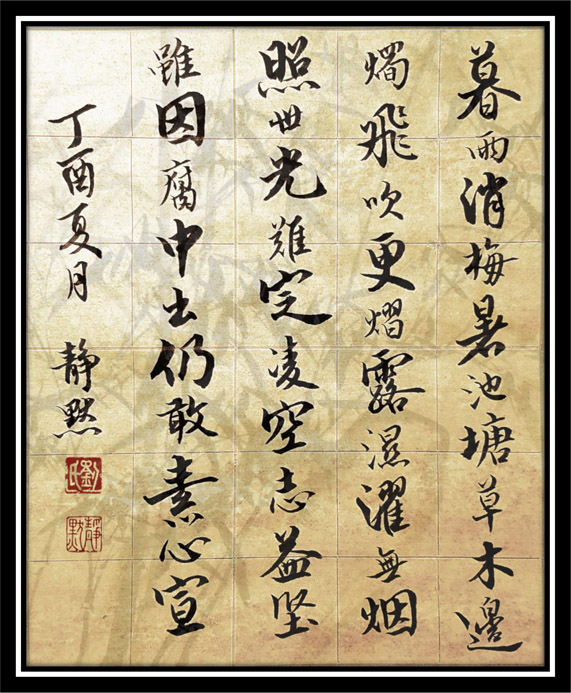 暮雨消梅暑池塘草木邊
燭飛吹更熠露濕濯無烟
照世光難定凌空志益堅
雖因腐中出仍敢素心宣
丁酉夏月
靜默
劉氏
靜默